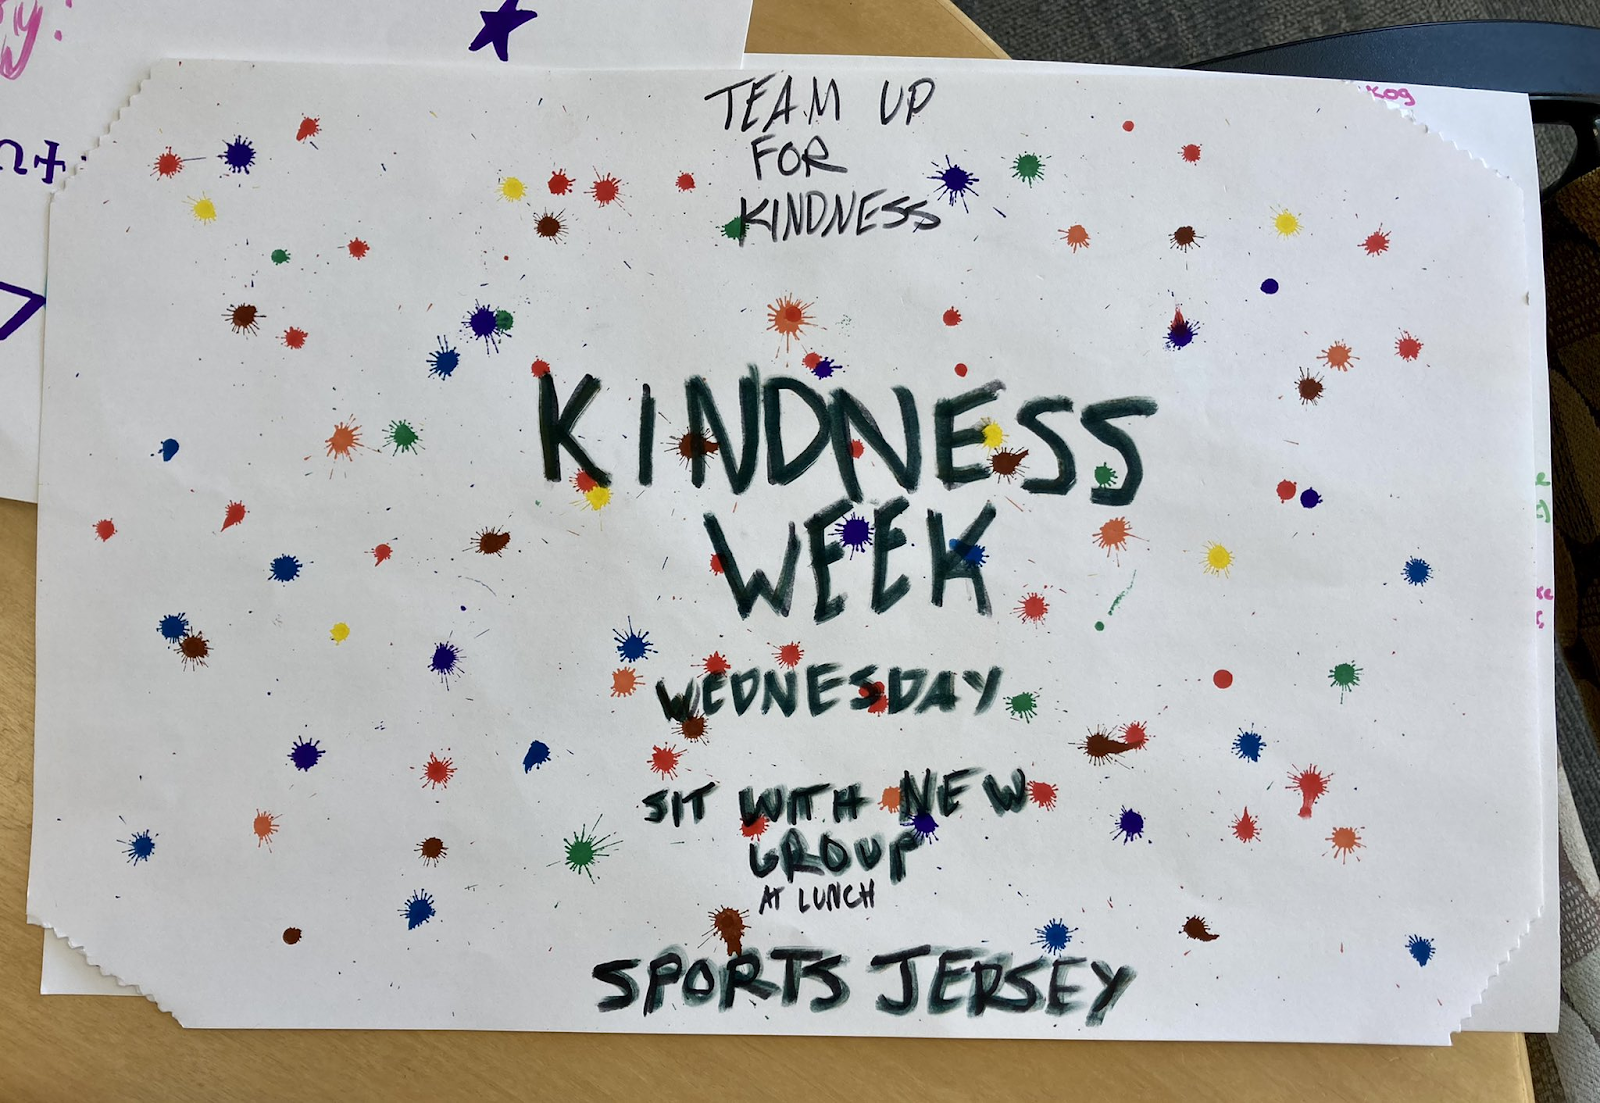 TEAM UP
FOR
KINDNESS
KINDNESS
WEEK
WEDNESDAY
SIT WITH NEW
GROUP
AT LUNCH
SPORTS JERSEY